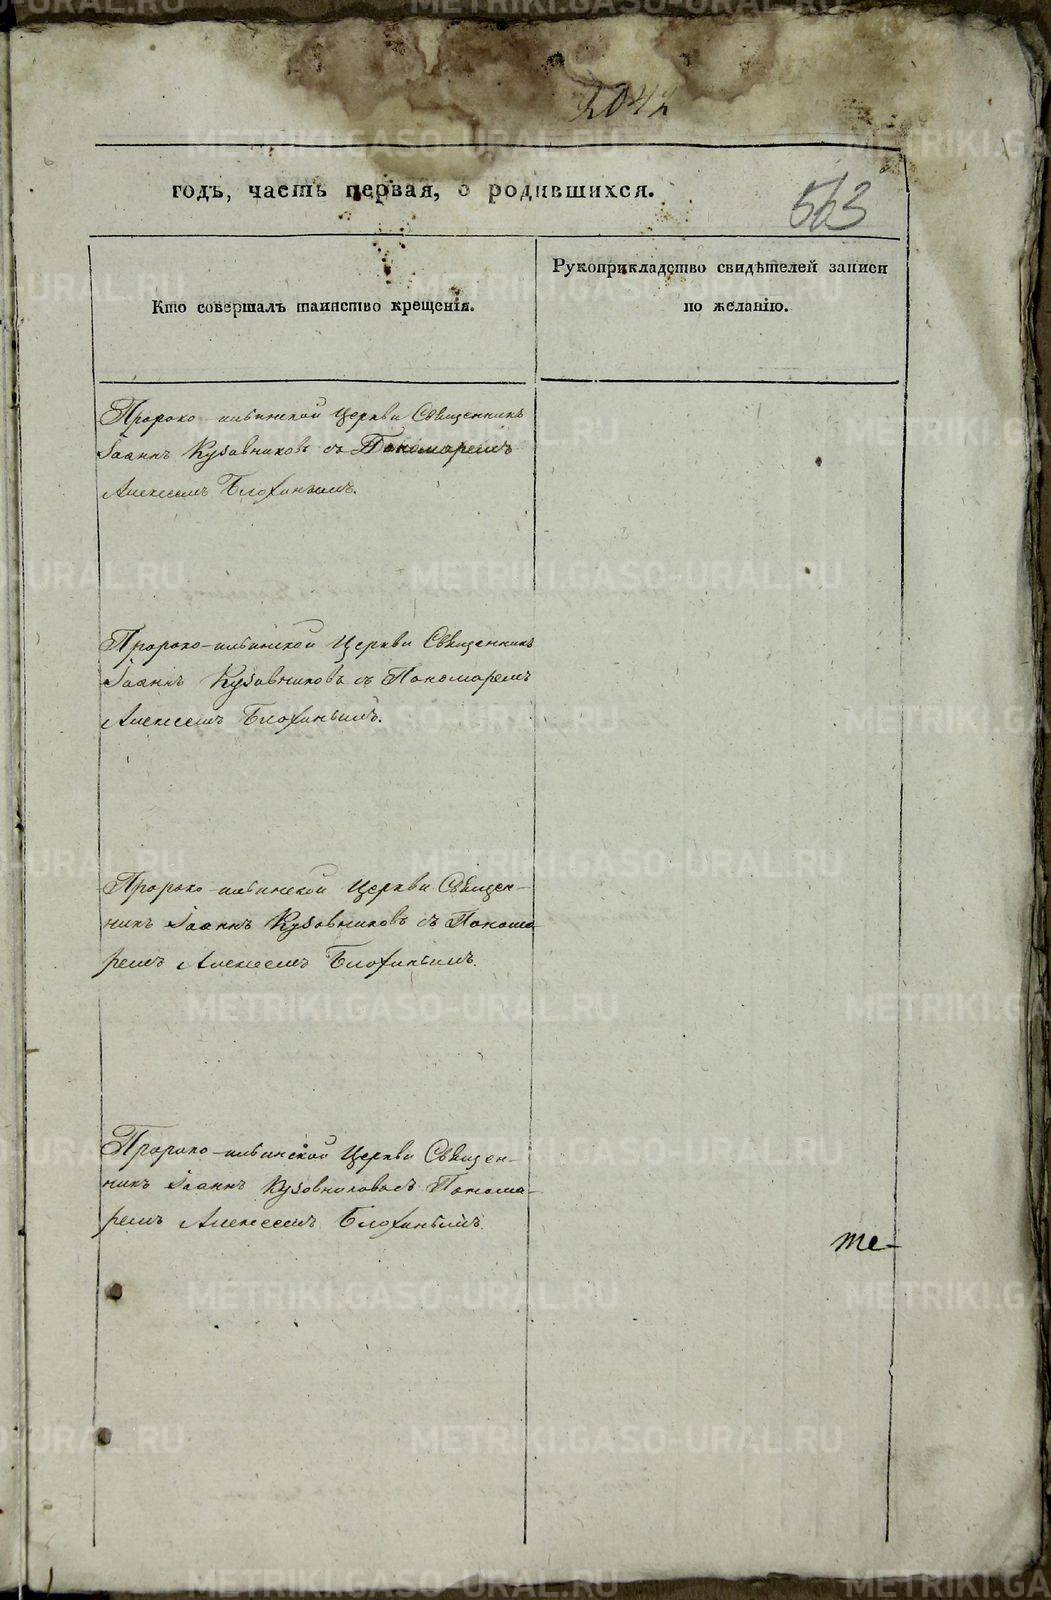 2042
563
годъ, часть первая, о родившихся.
Кто совершалъ таинство крещенія.
Рукоприкладство свидѣтелей записи
по желанію.
Пророко-ильинской Церкви Священникъ
Іоаннъ Кузовниковъ съ Пономаремъ
Алексеемъ Блохинымъ.
Пророко-ильинской Церкви Священникъ
Іоаннъ Кузовниковъ съ Пономаремъ
Алексеемъ Блохинымъ.
Пророко-ильинской Церкви Священ-
никъ Іоаннъ Кузовниковъ съ Понома-
ремъ Алексеемъ Блохинымъ.
Пророко-ильинской Церкви Священ-
никъ Іоаннъ Кузовниковъ съ Понома-
ремъ Алексеемъ Блохинымъ.
те-
METRIKI.GASO-URAL.RU